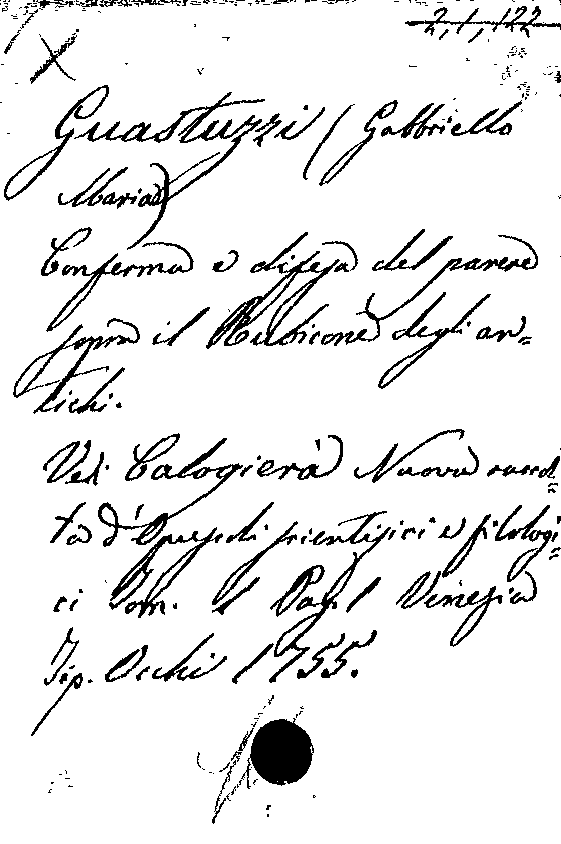 2,1,122
Guastuzzi (Gabbriello
Maria)
Conferma e difesa del parere
sopra il Rubicone degli an=
tichi.
Vedi Calogierà Nuova raccol=
ta d'Opuscoli scientifici e filologi=
ci Tom. 1 Pag. 1 Venezia
Tip. Occhi 1755.